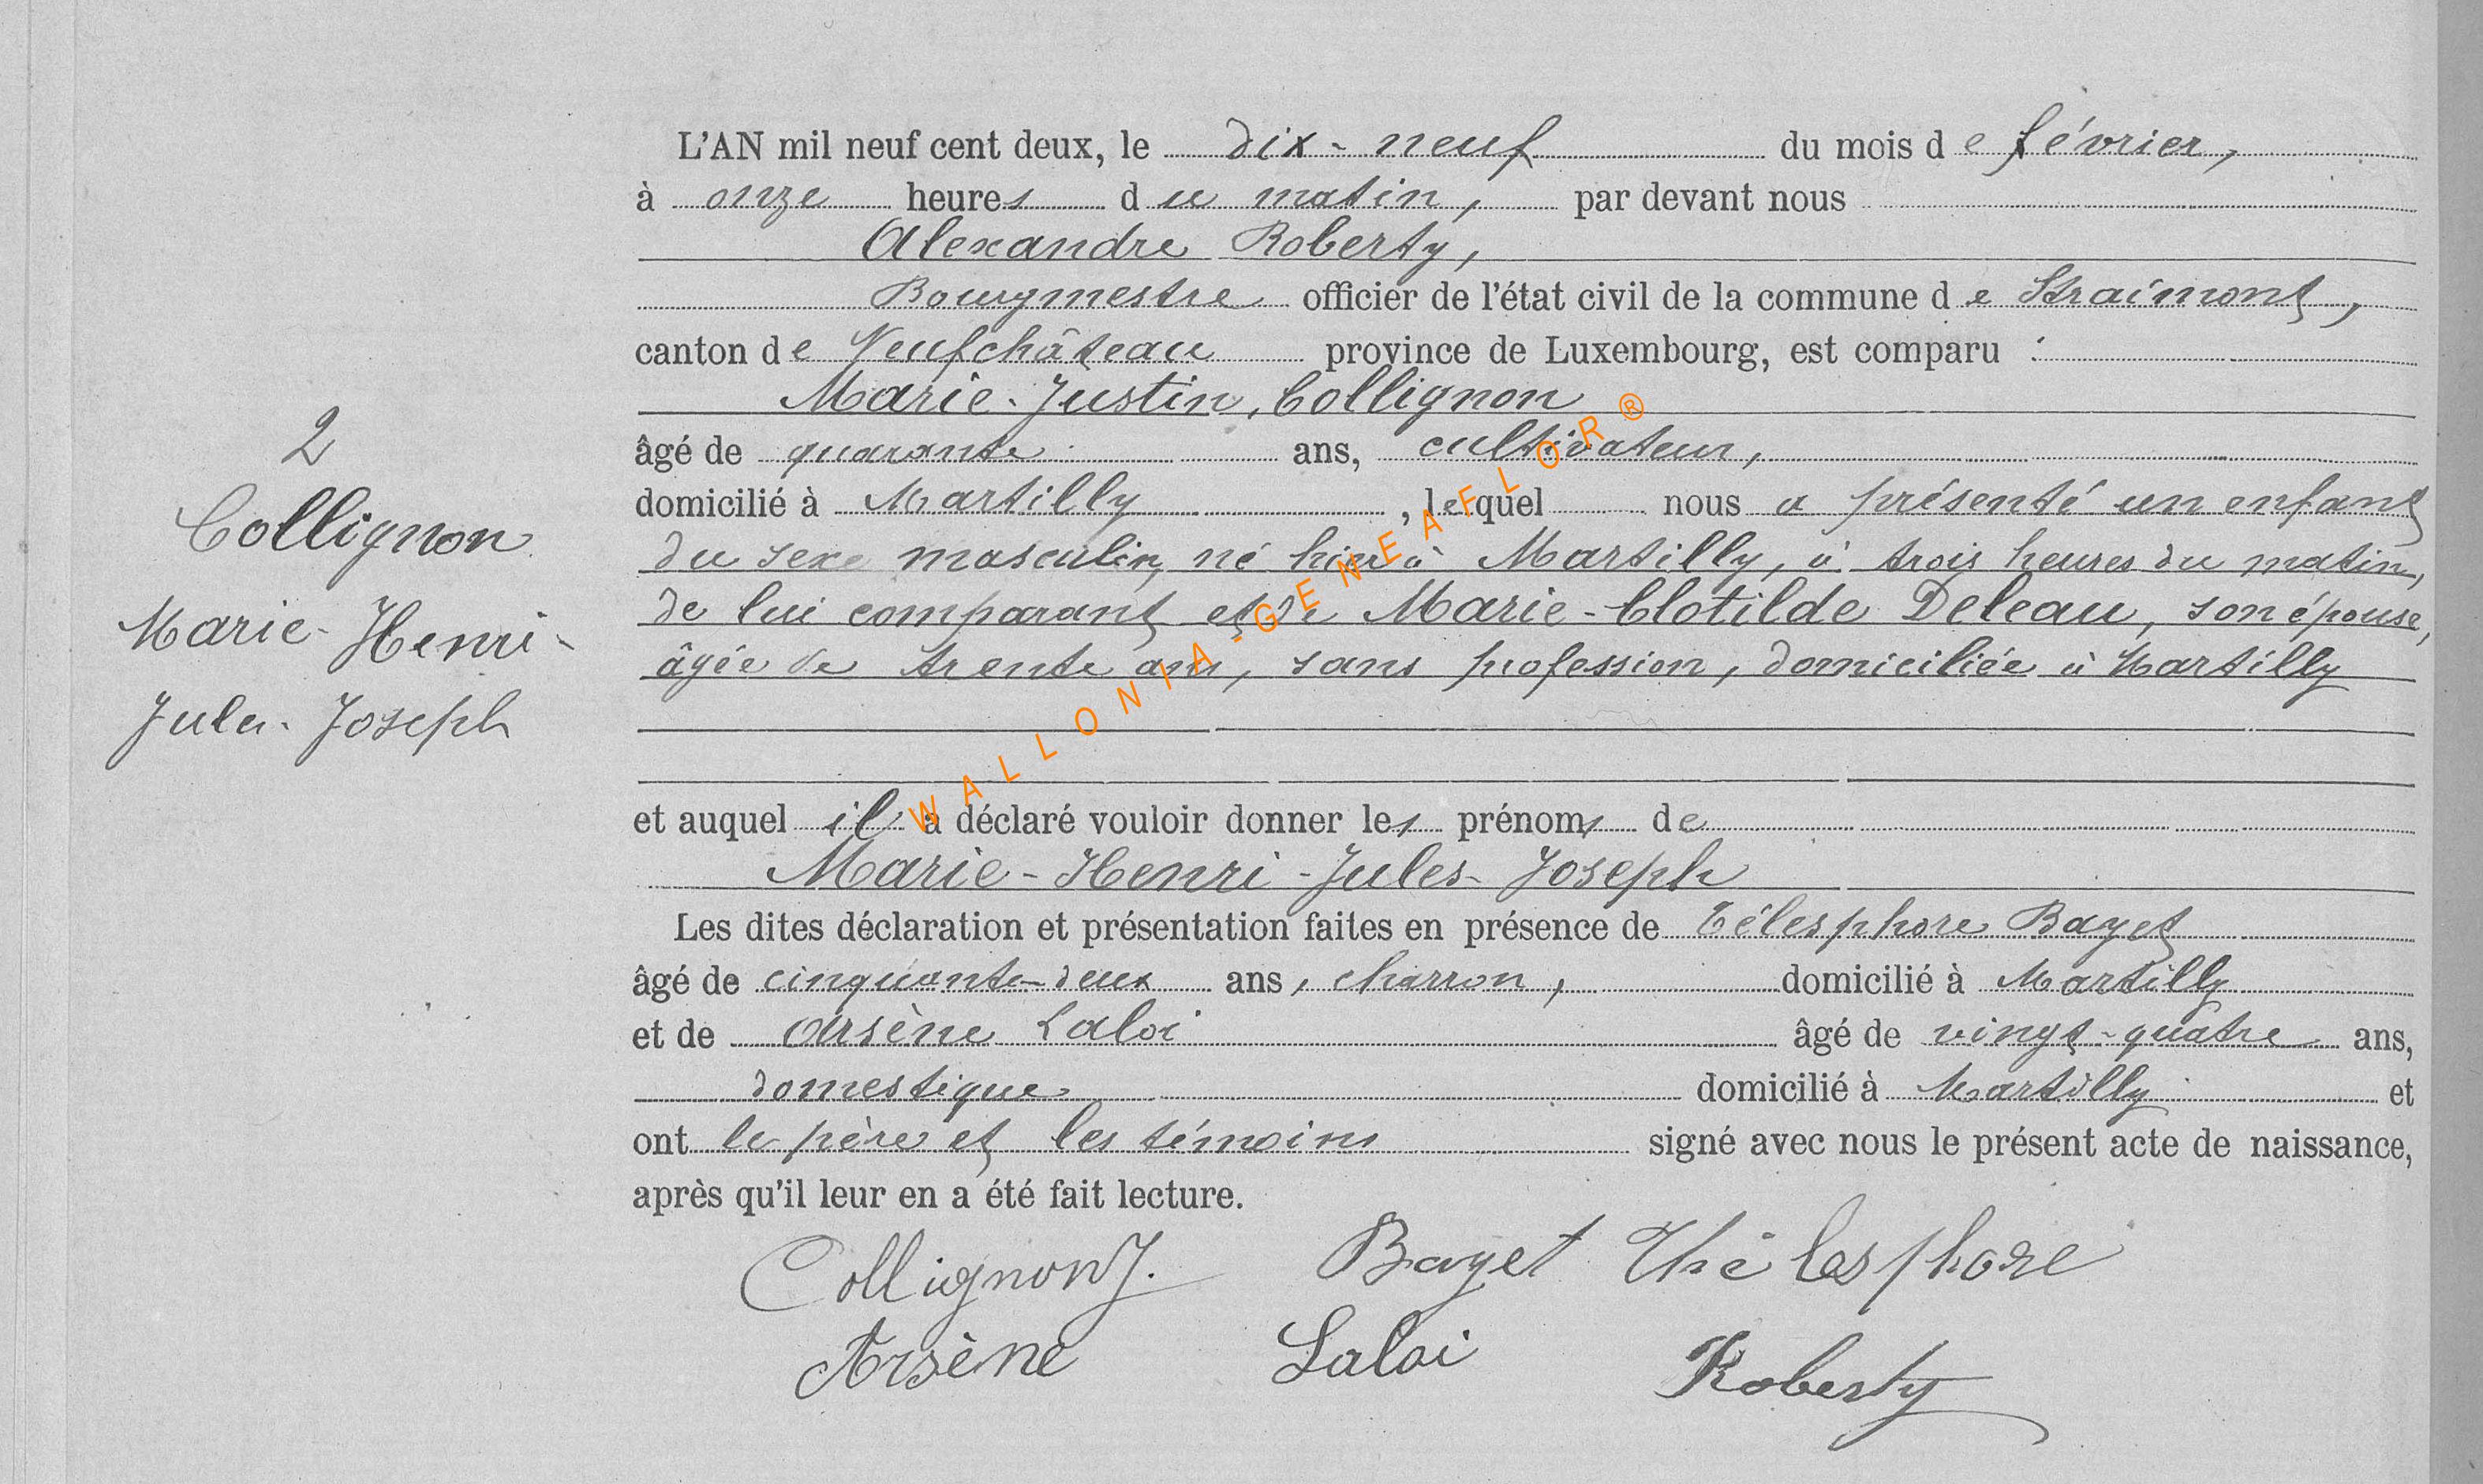 L'AN mil neuf cent deux, le dix-neuf du mois de février,
à onze heures du matin, par devant nous
Alexandre Roberty,
Bourgmestre officier de l'état civil de la commune de Straimont,
canton de Neufchâteau province de Luxembourg, est comparu :
Marie-Justin, Collignon
âgé de quarante ans, cultivateur,
domicilié à Martilly, lequel nous a présenté un enfant
du sexe masculin, né hier à Martilly, à trois heures du matin,
de lui comparant et de Marie-Clotilde Deleau, son épouse,
âgée de trente ans, sans profession, domiciliée à Martilly
et auquel il a déclaré vouloir donner les prénoms de
Marie-Henri-Jules-Joseph
Les dites déclaration et présentation faites en présence de Télesphore Bayet
âgé de cinquante-deux ans, charron, domicilié à Martilly
et de Arsène Laloi âgé de vingt-quatre ans,
domestique domicilié à Martilly et
ont le père et les témoins signé avec nous le présent acte de naissance,
après qu'il leur en a été fait lecture.
Collignon J. Bayet Thélesphore
Arsène Laloi Roberty
2
Collignon
Marie-Henri-
Jules-Joseph
WALLONIA-GENEAFLOR®